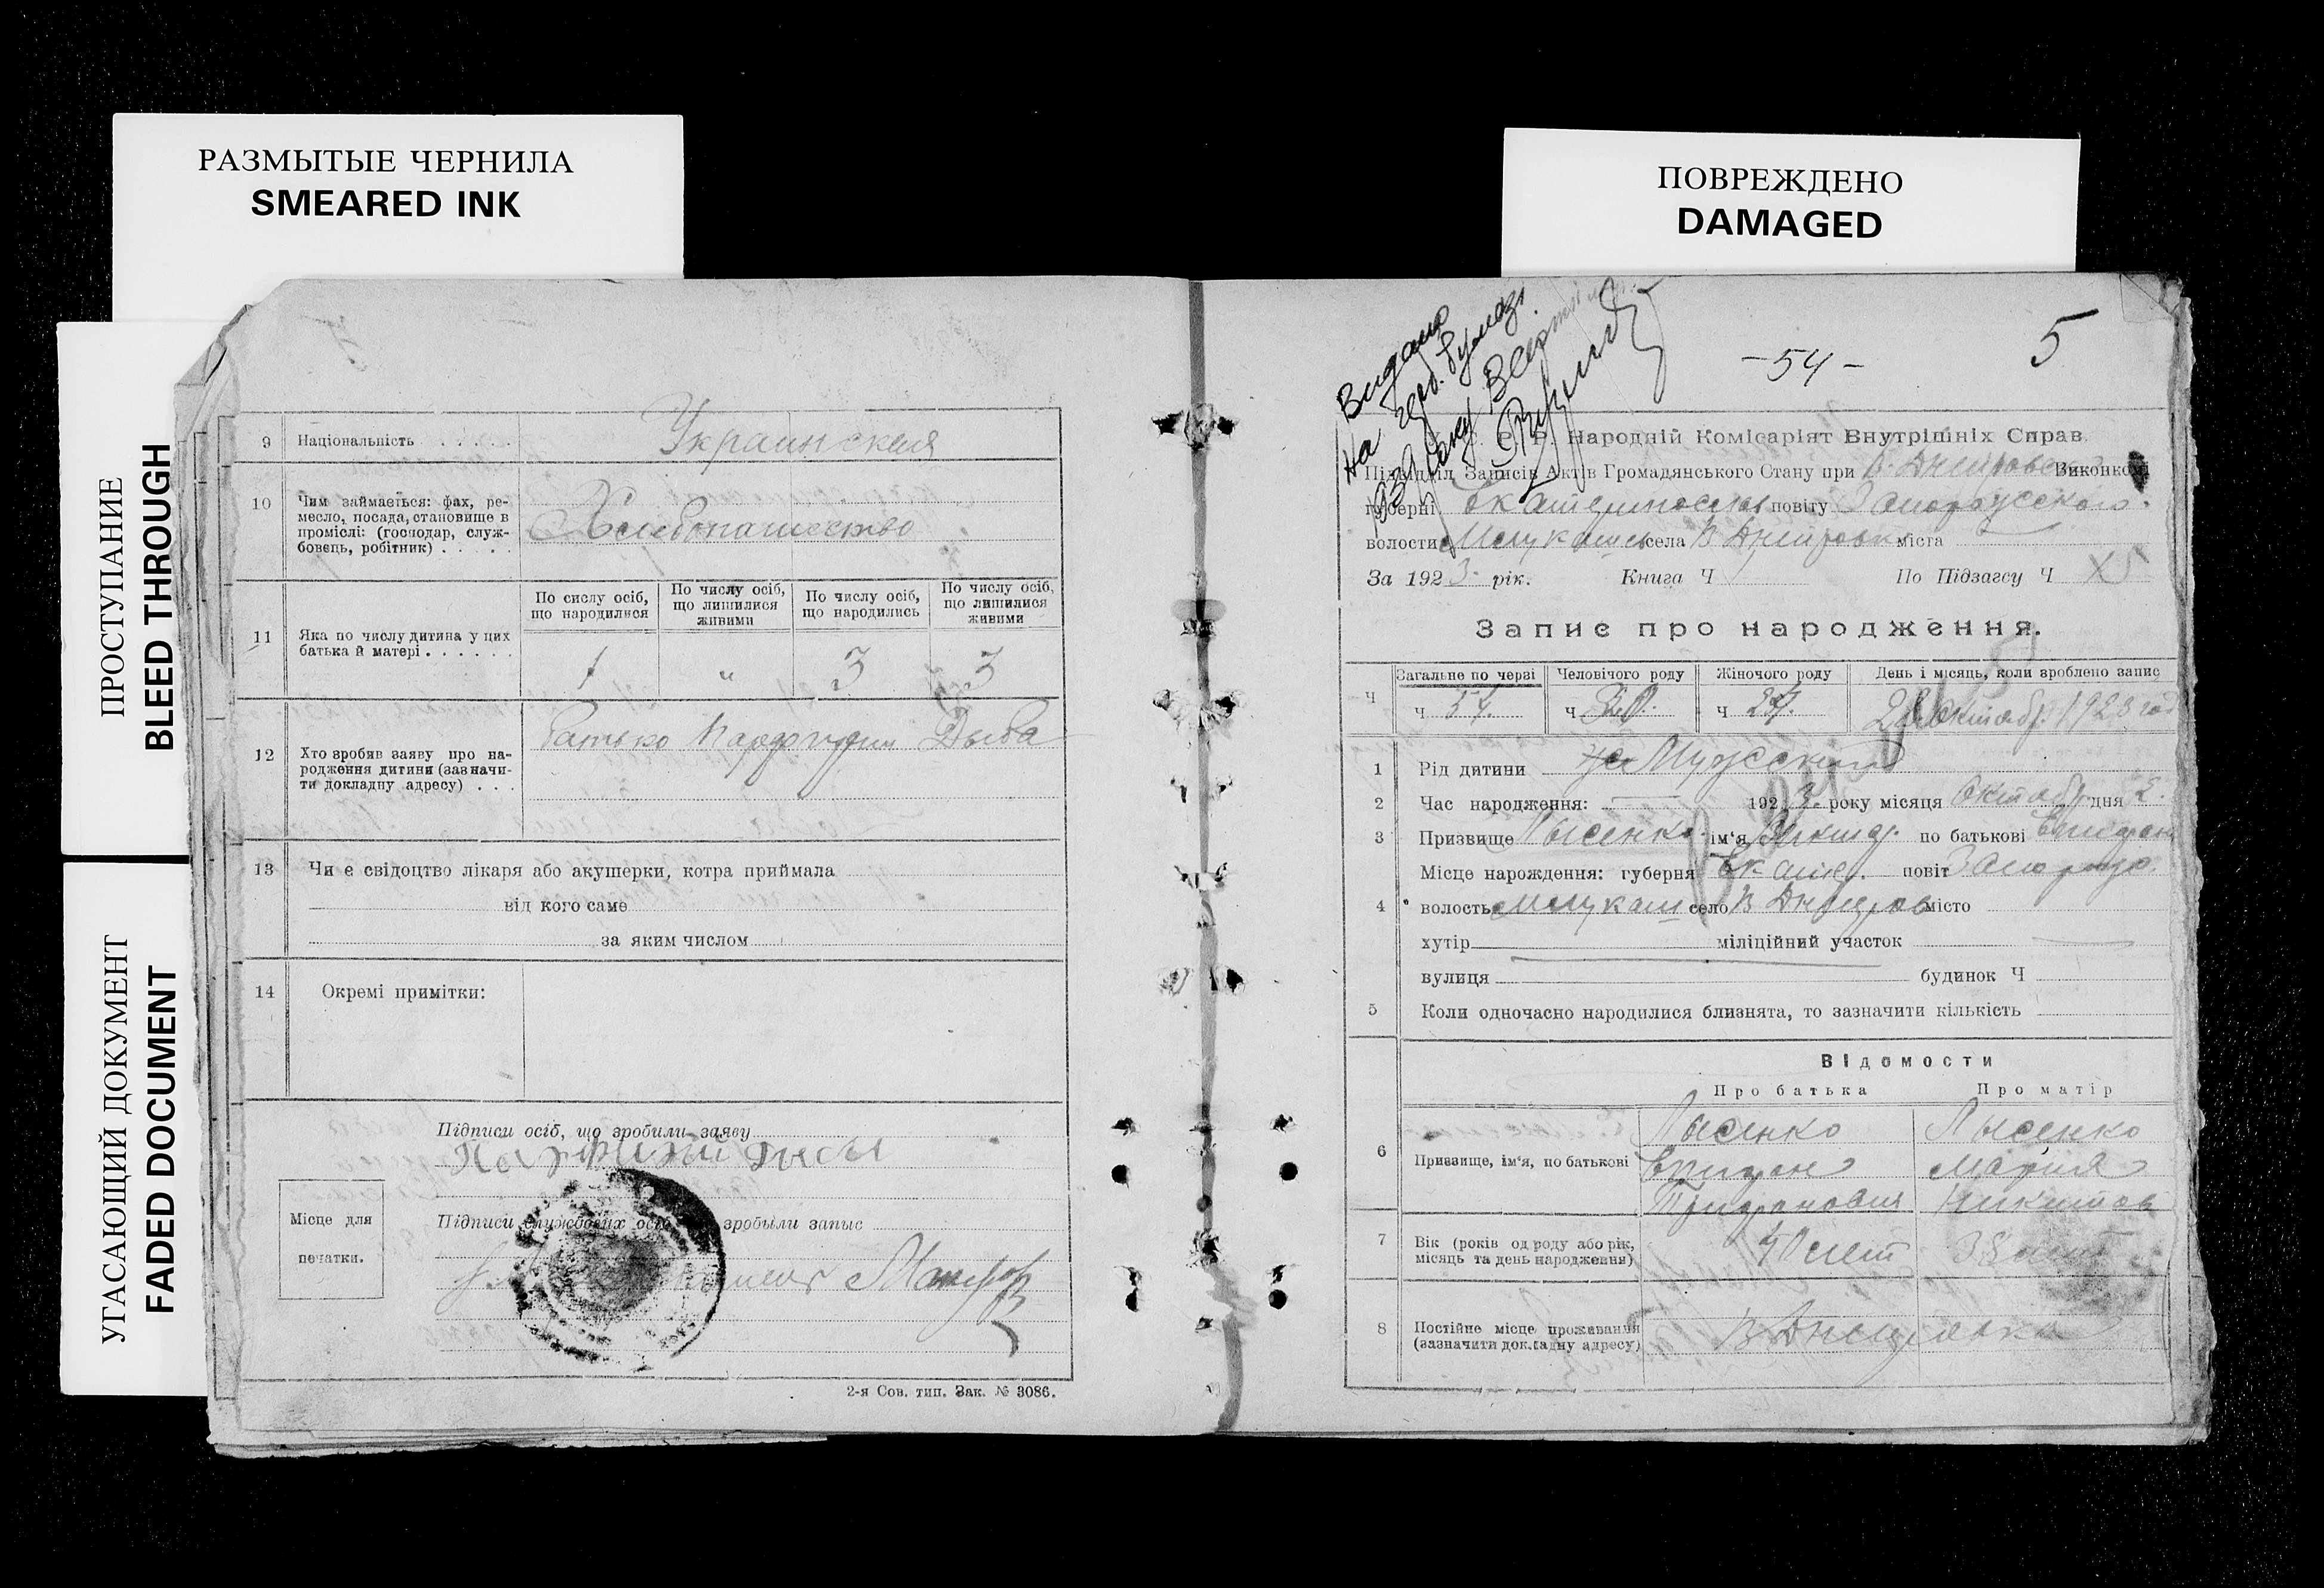 РАЗМЫТЫЕ ЧЕРНИЛА
SMEARED INK
ПРОСТУПАНИЕ
BLEED THROUGH
УГАСАЮЩИЙ ДОКУМЕНТ
FADED DOCUMENT
9 Національність . . . . . Украинская
10 Чим займається: фах, ре-
месло, посада, становище в
промислі: (господар, служ-
бовець, робітник) . . . . . Хлебопашество
11 Яка по числу дитина у цих
батька й матері . . . . . .
По сислу осіб,
що народилися
По числу осіб,
що лишилися
живими
По числу осіб,
що народились
По числу осіб,
що лишилися
живими
1 " 3 3
12 Хто зробив заяву про на-
родження дитини (зазначи-
ти докладну адресу) . . .
Батько Дыба
13 Чи є свідоцтво лікаря або акушерки, котра приймала
від кого саме
за яким числом
14 Окремі примітки:
Підписи осіб, що зробили заяву
Місце для
печатки.
Підписи службових осіб зробыли запис
2-я Сов. тип. Зак. № 3086.
ПОВРЕЖДЕНО
DAMAGED
Видано
на герб. бумазі
- 54 -
5
Народній Комісаріят Внутрішніх Справ
Підвідділ Записів Актів Громадянського Стану при В. Днепровск Виконкомі
губерні Екатеринослав повіту Запорожского
волости села В Днепровк міста
За 1923 рік. Книга Ч По Підзагсу Ч
Запис про народження.
Ч
Загальне по черзі
Ч 54.
Человічого роду
Ч 30.
Жіночого роду
Ч 24.
День і місяць, коли зроблено запис
28 Октябр 1923 год
1 Рід дитини Мужской
2 Час народження: 1923. року місяця Октябр дня 2.
3 Призвище Лысенко ім'я по батькові Епифан
4 Місце нарождення: губерня Екате. повіт Запорож.
волость село В Днепров місто
хутір міліційний участок
вулиця будинок Ч
5 Коли одночасно народилися близнята, то зазначити кількість
Відомости
Про батька Про матір
6 Призвище, ім'я, по батькові
Лысенко Лысенко
Епифан Мария
Трифановия Никитов
7 Вік (років од роду або рік,
місяць та день народження) 40 лет 38 лет
8 Постійне місце проживання
(зазначити докладну адресу) В Днепровка